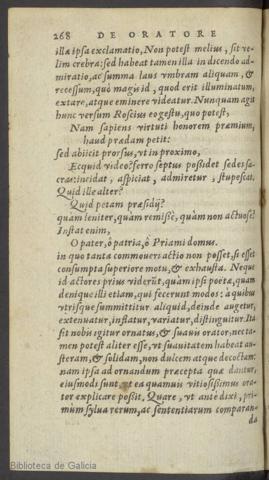 268 DE ORATORE
illa ipsa exclamatio, Non potest melius, sit ve-
lim crebra: sed habeat tamen illa in dicendo ad-
miratio, ac summa laus vmbram aliquam, &
recessum, quò magis id, quod erit illuminatum,
extare, atque eminere videatur. Nunquam agit
hunc versum Roscius eo gestu, quo potest,
Nam sapiens virtuti honorem præmium,
haud prædam petit:
sed abiicit prorsus, vt in proximo,
Ecquid video? ferro septus possidet sedes sa-
cras: incidat, aspiciat, admiretur, stupescat.
Quid ille alter?
Quid petam præsidij?
quàm leniter, quàm remissè, quàm non actuosè?
Instat enim,
O pater, ô patria, ô Priami domus.
in quo tanta commoueri actio non posset, si esset
consumpta superiore motu, & exhausta. Neque
id actores prius viderūt, quàm ipsi poetæ, quàm
denique illi etiam, qui fecerunt modos: à quibus
vtrisque summittitur aliquid, deinde augetur,
extenuatur, inflatur, variatur, distinguitur. Ita
sit nobis igitur ornatus, & suauis orator, nec ta-
men potest aliter esse, vt suauitatem habeat au-
steram, & solidam, non dulcem atque decoctam:
nam ipsa ad ornandum præcepta quæ dantur,
eiusmodi sunt, vt ea quamuis vitiosissimus ora-
tor explicare possit. Quare, vt ante dixi, pri-
mùm sylua rerum, ac sententiarum comparan-
da
Biblioteca de Galicia